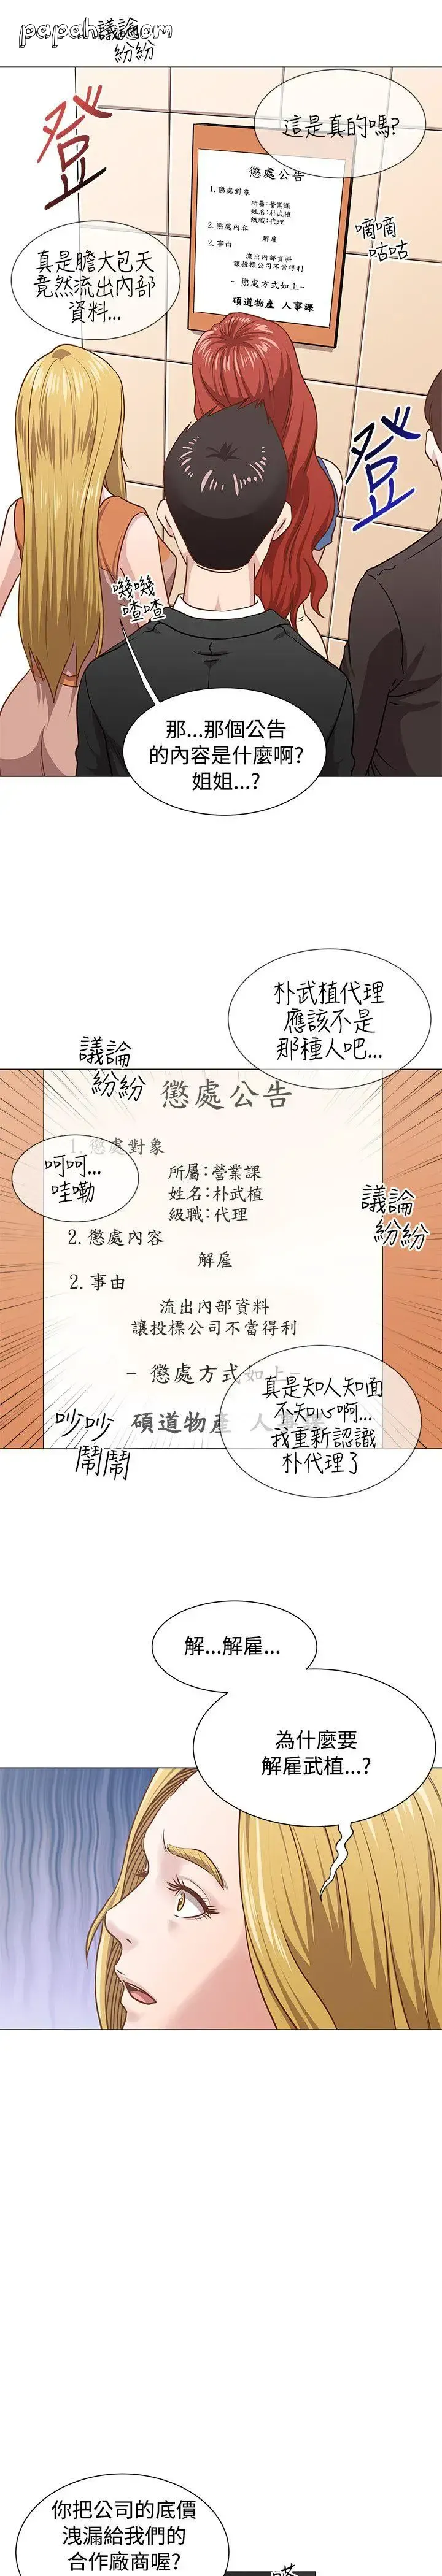 papaha.com
議論
紛紛
登
這是真的嗎?
懲處公告
1.懲處對象
所屬:營業課
姓名:朴武植
級職:代理
2.懲處內容
解雇
2.事由
流出內部資料
讓投標公司不當得利
- 懲處方式如上-
碩道物產 人事課
嘀嘀
咕咕
真是膽大包天
竟然流出內部
資料...
登
嘰嘰
喳喳
那...那個公告
的內容是什麼啊?
姐姐...?
朴武植代理
應該不是
那種人吧...
議論
紛紛
懲處公告
1.懲處對象
呵呵...
哇嘞
所屬:營業課
姓名:朴武植
級職:代理
議論
紛紛
2.懲處內容
解雇
2.事由
流出內部資料
讓投標公司不當得利
- 懲處方式如上-
真是知人知面
不知心啊...
我重新認識
朴代理了
碩道物產 人事課
吵吵
鬧鬧
解...解雇...
為什麼要
解雇武植...?
你把公司的底價
洩漏給我們的
合作廠商喔?